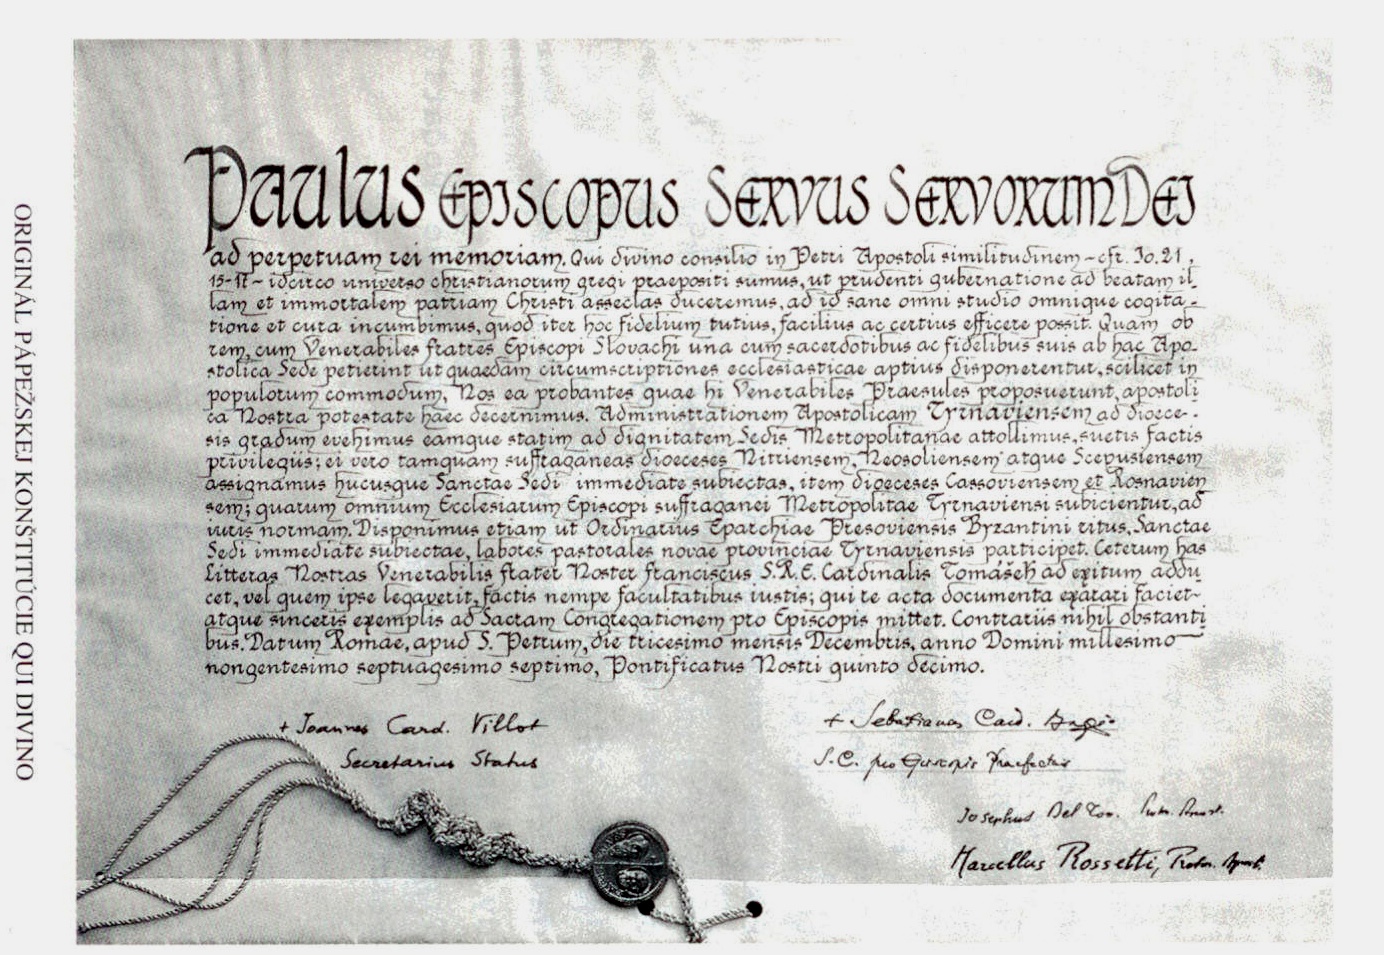 ORIGINÁL PÁPEŽSKEJ KONŠTITÚCIE QUI DIVINO
Paulus Episcopus Servus Servorum Dei
ad perpetuam rei memoriam. Qui divino consilio in Petri Apostoli similitudinem - cfr. Io. 21,
15-17 - idcirco universo christianorum gregi praepositi sumus, ut prudenti gubernatione ad beatam il
lam et immortalem patriam Christi asseclas duceremus, ad id sane omni studio omnique cogita-
tione et cura incumbimus, quod iter hoc fidelium tutius, facilius ac certius efficere possit. Quam ob
rem, cum Venerabiles fratres Episcopi Slovachi una cum sacerdotibus ac fidelibus suis ab hac Apo-
stolica Sede petierint ut quaedam circumscriptiones ecclesiasticae aptius disponerentur, scilicet in
populorum commodum, Nos ea probantes quae hi Venerabiles Praesules proposuerunt, apostoli
ca Nostra potestate haec decernimus. Administrationem Apostolicam Tyrnaviensem ad dioece-
sis gradum evehimus eamque statim ad dignitatem Sedis Metropolitanae attollimus, suetis factis
privilegiis; ei vero tamquam suffraganeas dioeceses Nitriensem, Neosoliensem atque Scepusiensem
assignamus hucusque Sanctae Sedi immediate subiectas, item dioeceses Cassoviensem et Rosnavien
sem; quarum omnium Ecclesiarum Episcopi suffraganei Metropolitae Tyrnaviensi subicientur, ad
iuris normam. Disponimus etiam ut Ordinarius Eparchiae Presoviensis Byzantini ritus, Sanctae
Sedi immediate subiectae, labores pastorales novae provinciae Tyrnaviensis participet. Ceterum has
Litteras Nostras Venerabilis frater Noster franciscus S.R.E. Cardinalis Tomášek ad exitum addu
cet, vel quem ipse legaverit, factis nempe facultatibus iustis; qui re acta documenta exarari faciet
atque sinceris exemplis ad Sacram Congregationem pro Episcopis mittet. Contrariis nihil obstanti
bus. Datum Romae, apud S. Petrum, die tricesimo mensis Decembris, anno Domini millesimo
nongentesimo septuagesimo septimo, Pontificatus Nostri quinto decimo.
+ Joannes Card. Villot
Secretarius Status
+ Sebastianus Card. Baggio
S.C. pro Episcopis Praefectus
Josephus Del Ton, Prot. Apost.
Marcellus Rossetti, Proton. Apost.